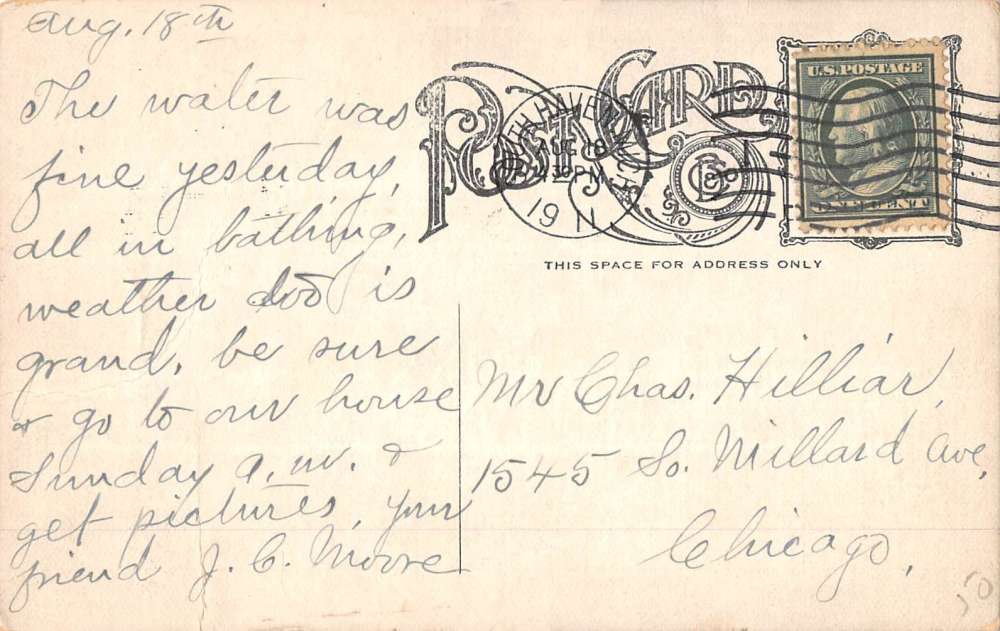 Aug. 18th
The water was
fine yesterday,
all in bathing,
weather is
grand, be sure
& go to our house
Sunday a.m. &
get pictures, your
friend J. C. Moore
POST CARD
SOUTH HAVEN, MICH.
AUG 18
30 PM
1911
U.S. POSTAGE
ONE CENT 1
THIS SPACE FOR ADDRESS ONLY
Mr Chas. Hilliar,
1545 So. Millard Ave,
Chicago,
50